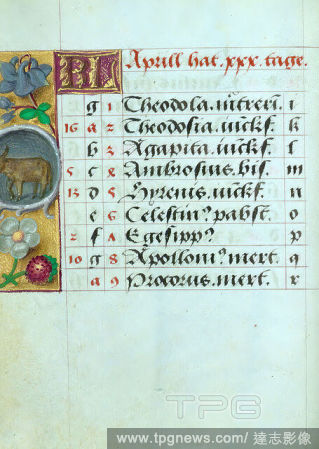 KL Aprill hat .xxx. tage.
g 1 Theodola. mertreri. i
16 a 2 Theodosia. iückf. k
b 3 Agapita. iückf. l
5 c 4 Ambrosius. bis. m
13 d 5 Hyrenis. iückf. n
e 6 Celestin? pabst. o
2 f A Egesipp? p
10 g 8 Apolloni? mert. q
a 9 Procorus. mert. r
TPG
www.tpgnews.com/ 達志影像